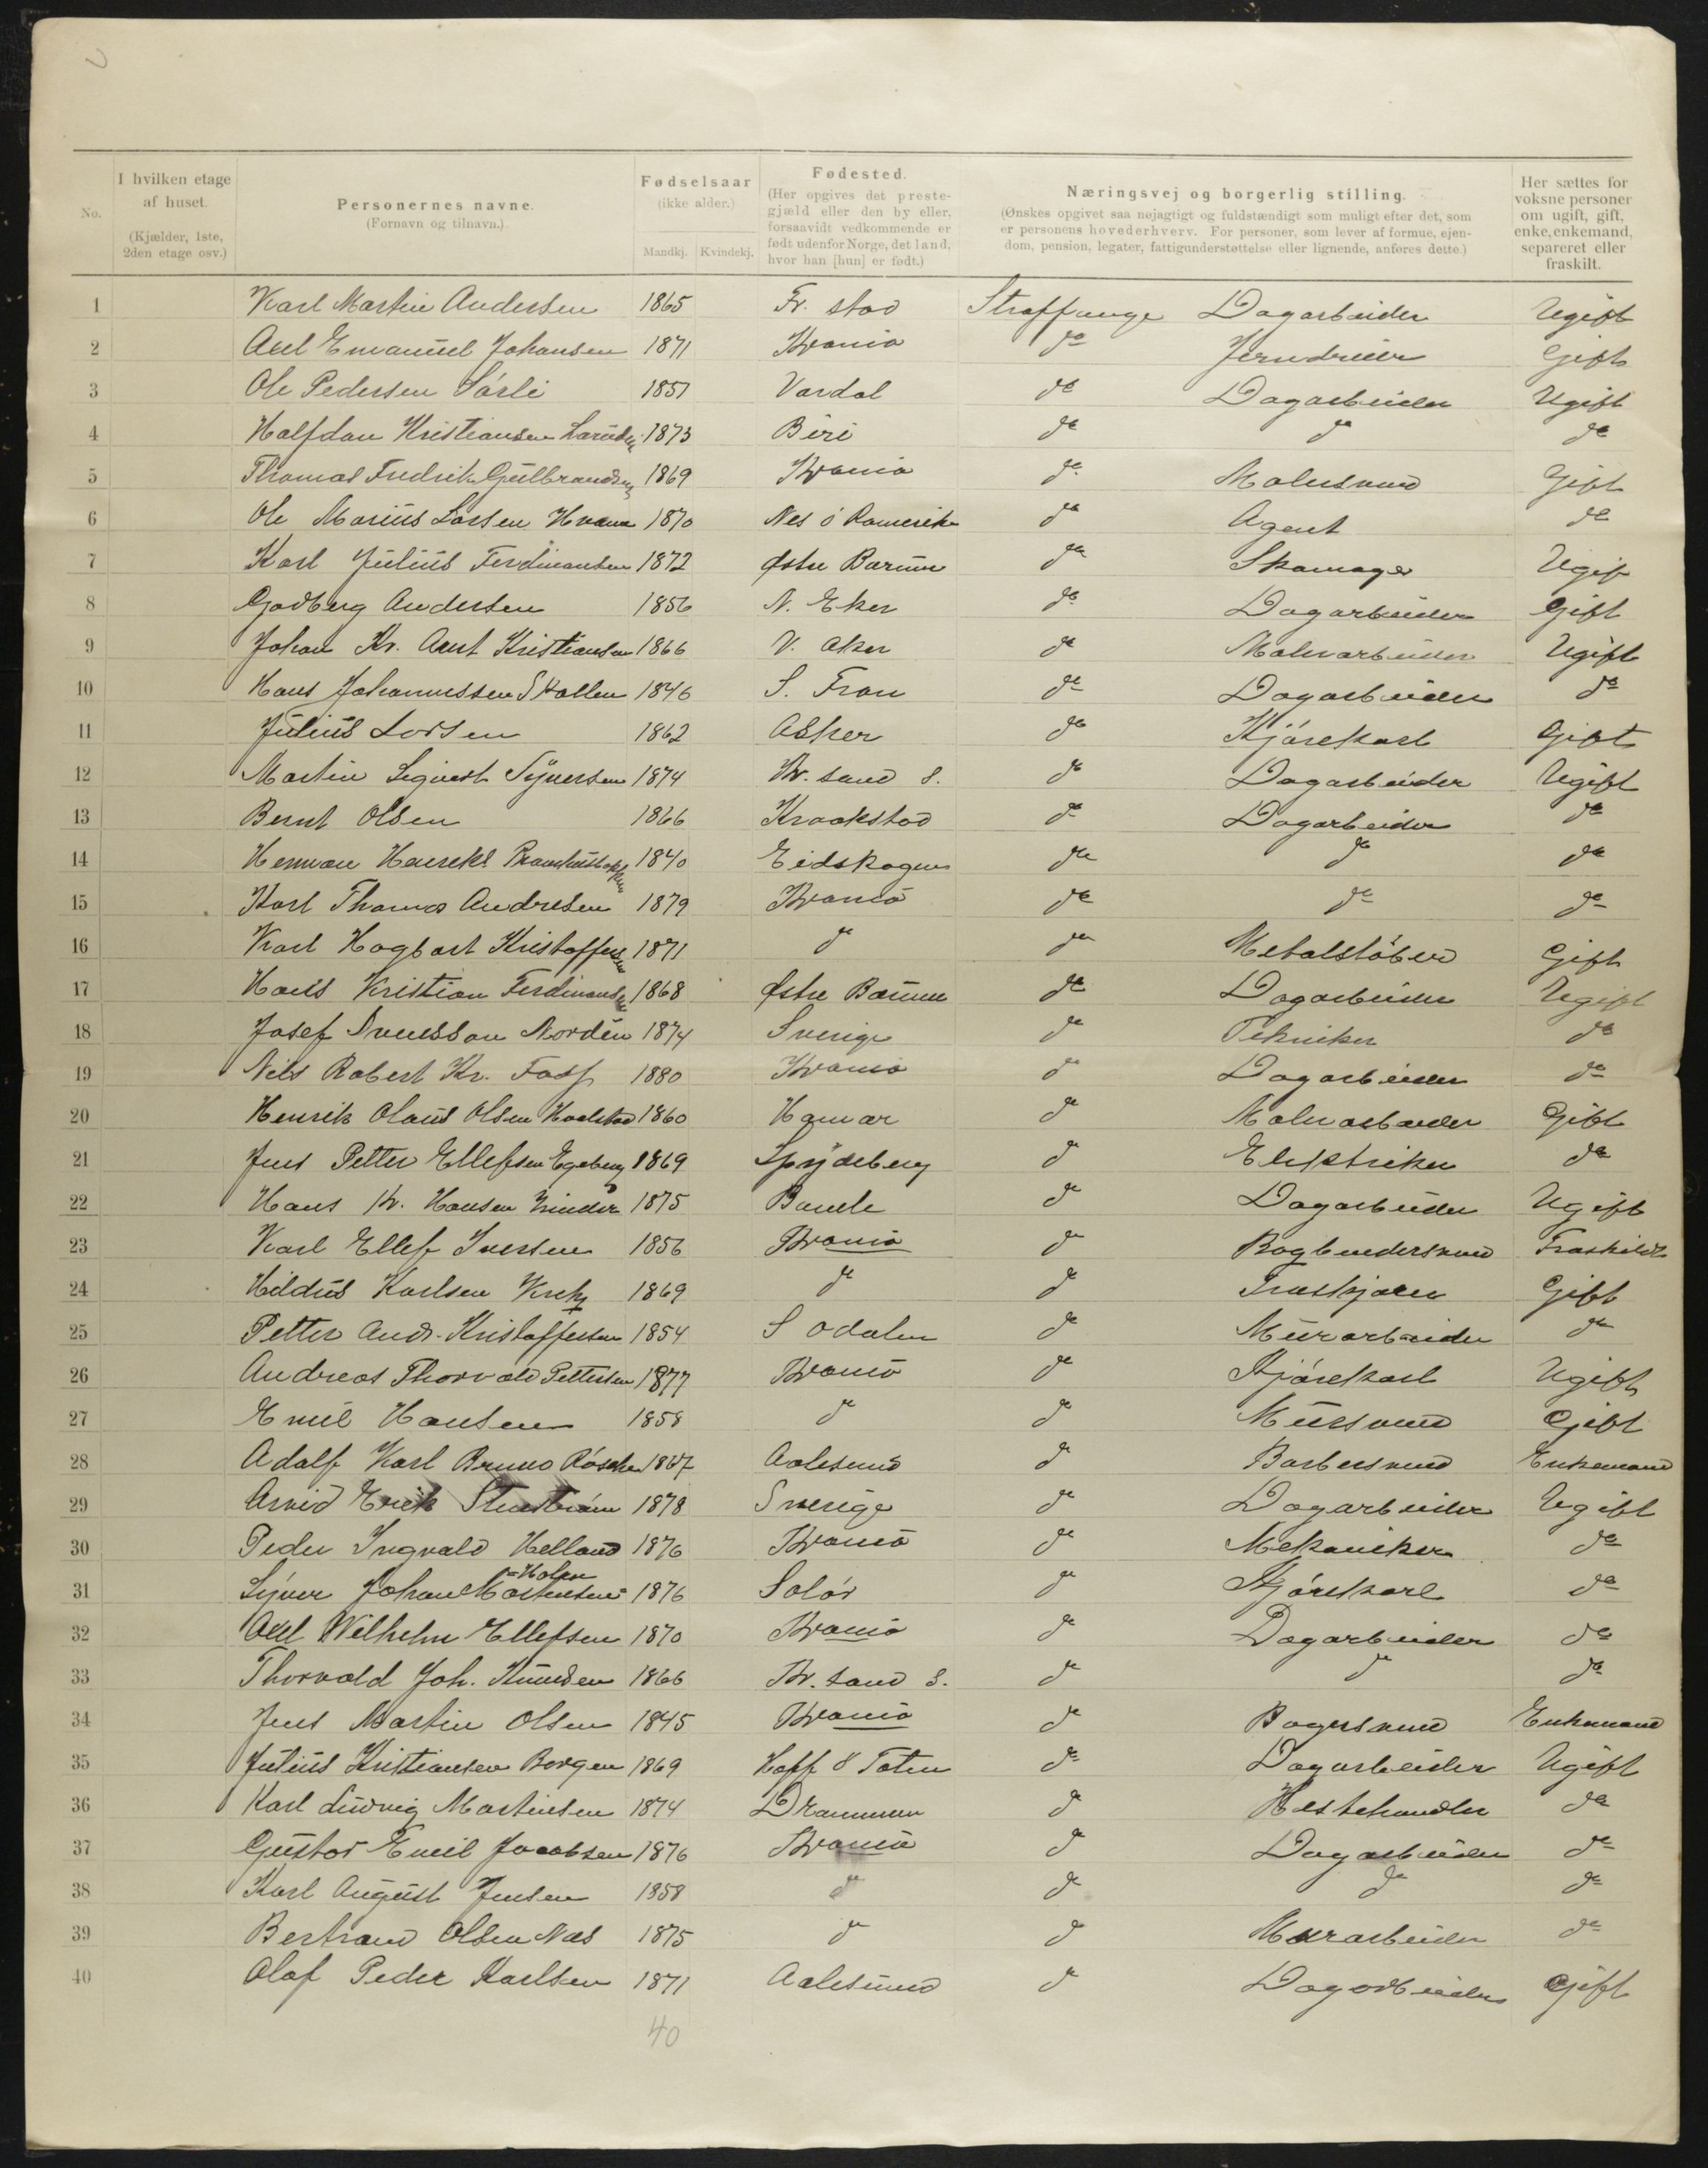 No.
I hvilken etage af huset. (Kjælder, 1ste, 2den etage osv.)
Personernes navne. (Fornavn og tilnavn.)
Fødselsaar (ikke alder.) Mandkj. Kvindekj.
Fødested. (Her opgives det prestegjæld eller den by eller, forsaavidt vedkommende er født udenfor Norge, det land, hvor han [hun] er født.)
Næringsvej og borgerlig stilling. (Ønskes opgivet saa nøjagtigt og fuldstændigt som muligt efter det, som er personens hovederhverv. For personer, som lever af formue, ejendom, pension, legater, fattigunderstøttelse eller lignende, anføres dette.)
Her sættes for voksne personer om ugift, gift, enke, enkemand, separeret eller fraskilt.
1 Karl Martin Andersen 1865 Fr. stad Straffange Dagarbeider Ugift
2 Axel Emanuel Johansen 1871 Krania do Jerndreier Gift
3 Ole Pedersen Sørli 1851 Vardal do Dagarbeider Ugift
4 Halfdan Kristiansen 1873 Biri do do do
5 Thomas Fredrik Gulbrandsen 1869 Krania do Malersvend Gift
6 Ole Marius Larsen 1870 Nes ø Romerike do Agent do
7 Karl Julius Ferdinansen 1872 Østre Barum do Skomager Ugift
8 Godberg Andersen 1856 N. Eker do Dagarbeider Gift
9 Johan Kr. Arnt Kristiansen 1866 V. Aker do Malerarbeider Ugift
10 Hans Johannessen Skallen 1846 S. Fron do Dagarbeider do
11 Julius Larsen 1862 Asker do Kjørekarl Gift
12 Martin Sigvart Synersen 1874 Kr. sand S. do Dagarbeider Ugift
13 Bernt Olsen 1866 Kraakstad do Dagarbeider do
14 Herman 1840 Eidskogen do do do
15 Karl Thomas Andresen 1879 Krania do do do
16 Karl Hagbart Kristoffersen 1871 do do Metalstøber Gift
17 Hans Kristian Ferdinansen 1868 Østre Barum do Dagarbeider Ugift
18 Josef Svensson Nordén 1874 Sverige do Tekniker do
19 Nils Robert Kr. Foss 1880 Krania do Dagarbeider do
20 Henrik Olaus Olsen 1860 Hamar do Malerarbeider Gift
21 Jens Petter Ellefsen Egeberg 1869 Spydeberg do Elektriker do
22 Hans Kr. Hansen 1875 Bamle do Dagarbeider Ugift
23 Karl Ellef Iversen 1856 Krania do Bogbindersvend Fraskildt
24 Hildus Karlsen 1869 do do Gift
25 Petter Andr. Kristoffersen 1854 S Odalen do Murarbeider do
26 Andreas Thorvald Pettersen 1877 Krania do Kjørekarl Ugift
27 Emil Hansen 1858 do do Mursvend Gift
28 Adolf Karl Bruno 1867 Aalesund do Barbersvend Enkemand
29 Arvid Erik 1878 Sverige do Dagarbeider Ugift
30 Peder Ingvald Helland 1876 Krania do Mekaniker do
=Holen
31 Syver Johan Mortensen 1876 Solør do Kjørekarl do
32 Axel Wilhelm Ellefsen 1870 Krania do Dagarbeider do
33 Thorvald Joh. Knudsen 1866 Kr. sand S. do do do
34 Jens Martin Olsen 1845 Krania do Bagersvend Enkemand
35 Julius Kristiansen Borgen 1869 Hoff Ø Toten do Dagarbeider Ugift
36 Karl Ludvig Martinsen 1874 Drammen do Hestehandler do
37 Gustav Emil Jacobsen 1876 Krania do Dagarbeider do
38 Karl August Jensen 1858 do do do do
39 Bertrand Olsen Næs 1875 do do Murarbeider do
40 Olaf Peder Karlsen 1871 Aalesund do Dagarbeider Gift
40